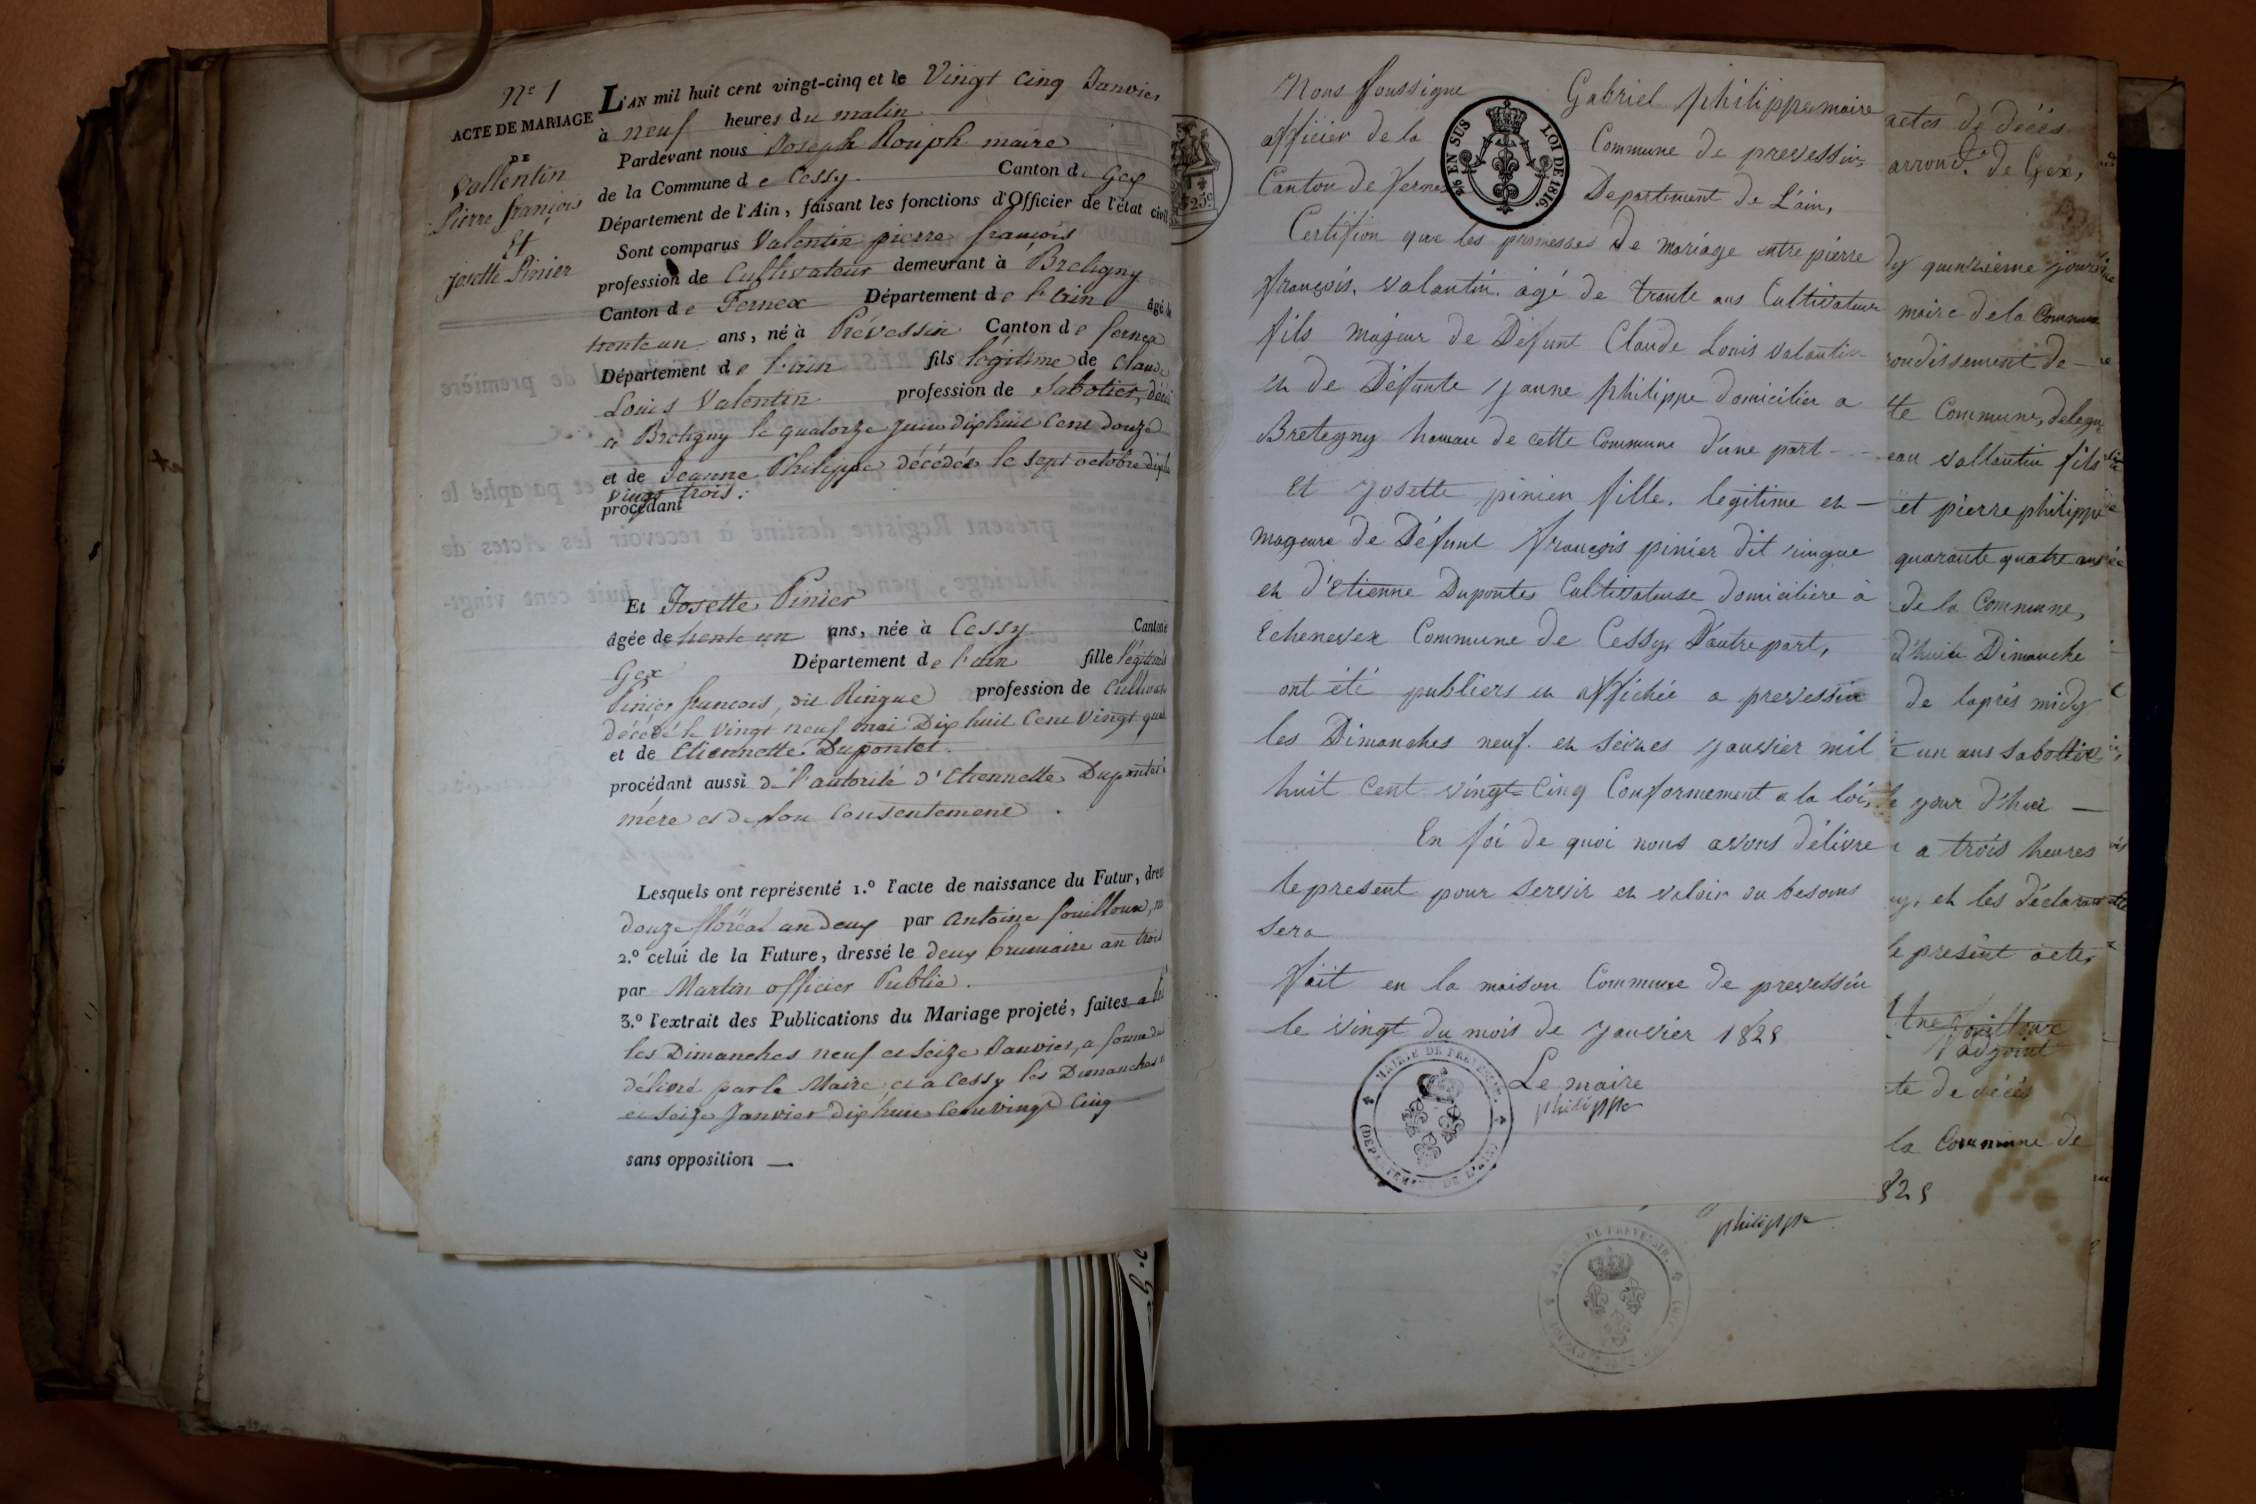 Nº 1
ACTE DE MARIAGE
DE
Vallentin
Pierre françois
Et
Josette Pinier
L'AN mil huit cent vingt-cinq et le Vingt cinq Janvier
à neuf heures du matin
Pardevant nous Joseph Rouph maire
de la Commune de Cessy. Canton de Gex
Département de l'Ain, faisant les fonctions d'Officier de l'état civil
Sont comparus Valentin pierre françois
profession de Cultivateur demeurant à Bretigny
Canton de Fernex Département de l'ain âgé de
trente un ans, né à Prévessin Canton de fernex
Département de l'ain fils légitime de Claude
Louis Valentin profession de Sabotier, décédé
a Bretigny le quatorze juin dixhuit Cent douze
et de Jeanne Philippe décédée le sept octobre dixhuit
vingt trois.
procédant
Et Josette Pinier
âgée de trente un ans, née à Cessy Canton
Gex Département de l'ain fille légitime
Pinier francois, dit Ringue profession de Cultivateur
décédé le vingt neuf mai Dix huit Cent Vingt
et de Etiennette Dupontet.
procédant aussi de l'autorité d'Etiennette Dupontet
mére et de son Consentement.
Lesquels ont représenté 1.º l'acte de naissance du Futur, dressé
douze floréal an deux par antoine fouilloux,
2.º celui de la Future, dressé le deux brumaire an trois
par Martin officier Public.
3.º l'extrait des Publications du Mariage projeté, faites a
les Dimanches neuf et Seize Janvier, a forme du
délivré par le Maire et a Cessy les Dimanches
et Seize Janvier dixhuit Cent vingt Cinq
sans opposition
25 c
Nous soussigne Gabriel philippe maire
officier de la Commune de prevessin
Canton de Fernex Departement de L'ain,
26 EN SUS LOI DE 1816.
Certifion que les promesses de mariage entre pierre
françois, valantin. âgé de trente ans Cultivateur
fils majeur de Défunt Claude Louis valantin
et de Défunte Jaune philippe domicilier a
Bretegny hameau de cette Commune d'une part
Et Josette pinier fille. legitime et
mageure de Défunt françois pinier dit ringue
et d'Etienne Dupontes Cultivateuse domicilière à
Echenevex Commune de Cessy, D'autre part,
ont été publiers et affichée a prevessin
les Dimanches neuf. et seizes janvier mil
huit Cent vingt-Cinq Conformement a la loi,
En foi de quoi nous avons délivre
le present pour servir et valoir au besoins
sera
Fait en la maison Commune de prevessin
le vingt du mois de janvier 1825
Le maire
philippe
MAIRIE DE PREVESSIN.
(DÉPARTEMENT DE L'AIN)
philippe
actes de décés
arrond.t de Gex,
quenzieme jour
maire de la Commune
ondissement de
te Commune, delegu
eau vallantin fils
et pierre philippe
quarante quatre ans
de la Commune,
d'huit Dimanche
de laprés midy
un ans sabottier
jour d'hui
a trois heures
et les déclarans
le present acte,
fouilloux
adjoint
te de décés
la Commune de
825